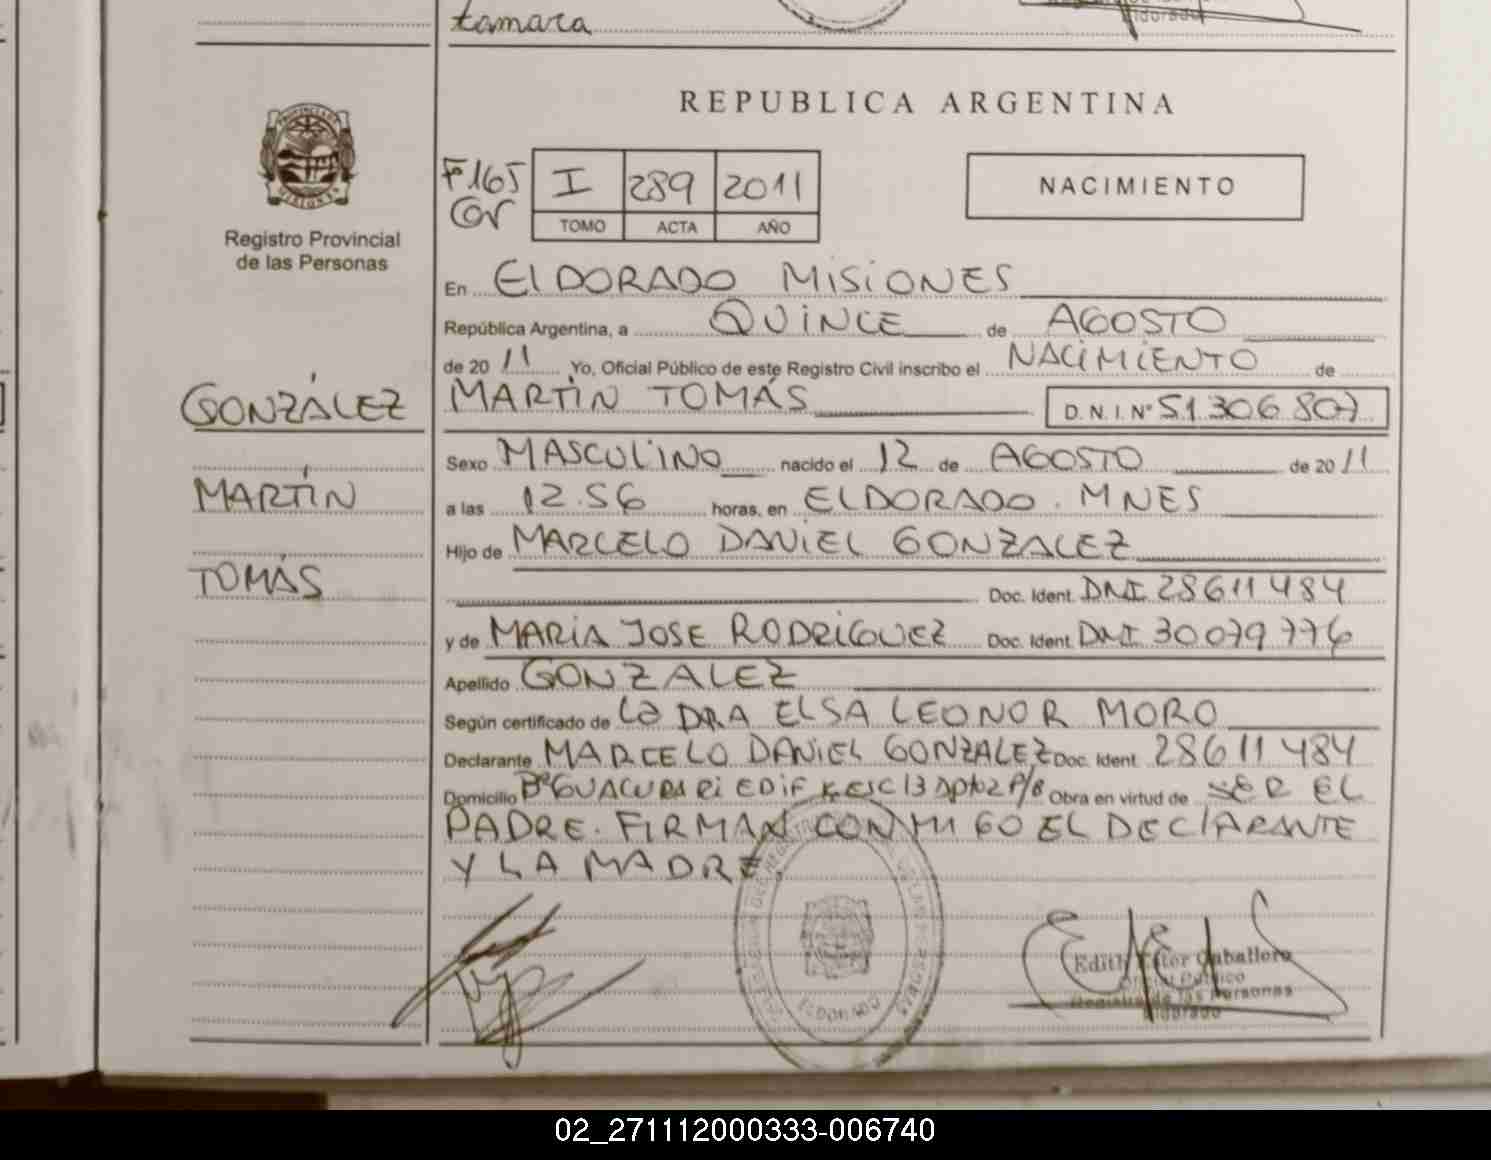 tamara
Eldorado
REPUBLICA ARGENTINA
F 165
Cor
I 289 2011
TOMO ACTA AÑO
NACIMIENTO
Registro Provincial
de las Personas
En ElDORADO MISIONES
República Argentina, a QUINCE de AGOSTO
de 20 11 Yo, Oficial Público de este Registro Civil inscribo el NACIMIENTO de
GONZÁLEZ
MARTÍN TOMÁS D.N.I. Nº 51.306.807
Sexo MASCULINO nacido el 12 de AGOSTO de 20 11
MARTÍN
a las 12.56 horas, en ELDORADO. MNES
Hijo de MARCELO DANIEL GONZALEZ
TOMÁS
Doc. Ident. DNI 28611484
y de MARIA JOSE RODRIGUEZ Doc. Ident. DNI 30079776
Apellido GONZALEZ
Según certificado de La DRA ELSA LEONOR MORO
Declarante MARCELO DANIEL GONZALEZ Doc. Ident. 28611484
Domicilio Bº GUACURARI EDIF K ESC 13 Dpto 2 P/B Obra en virtud de SER EL
PADRE. FIRMAN CONMIGO EL DEClARANTE
Y LA MADRE.
Edith Ester Caballero
Oficial Público
Registro de las Personas
Eldorado
ELDORADO
02_271112000333-006740